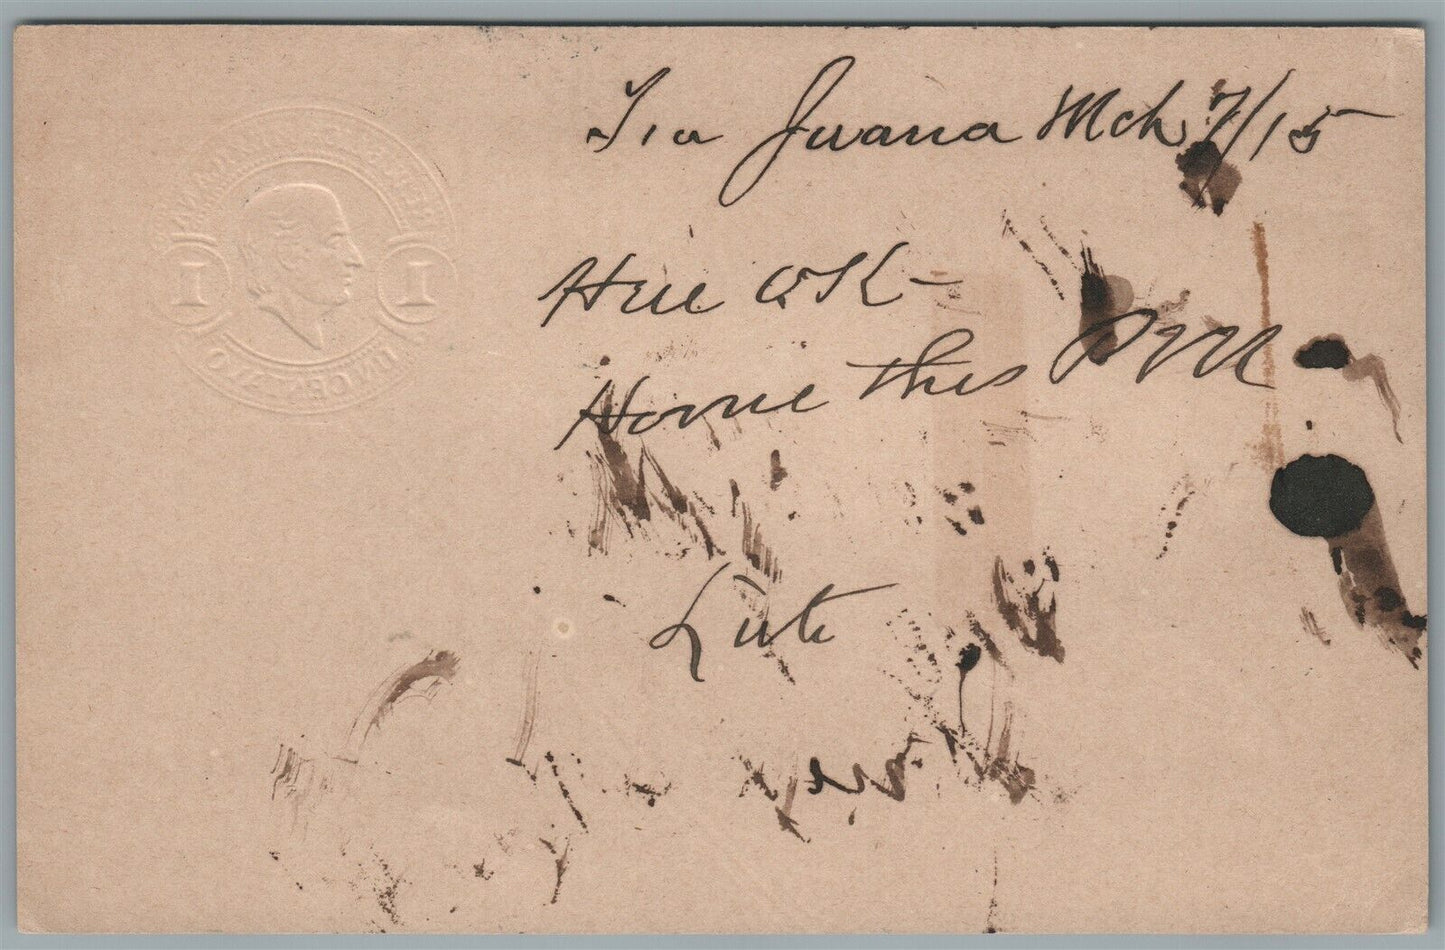 Tia Juana Mch 7/15
Here OK -
Home this PM
Lute
1 1